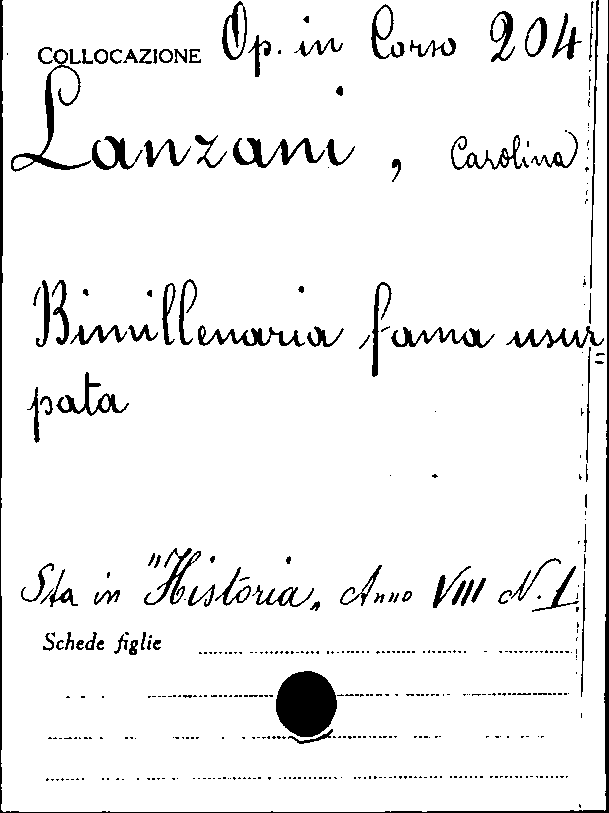 COLLOCAZIONE Op. in Corso 204
Lanzani, Carolina
Bimillenaria fama usur=
pata
Sta in "Historia„ Anno VIII N. 1
Schede figlie